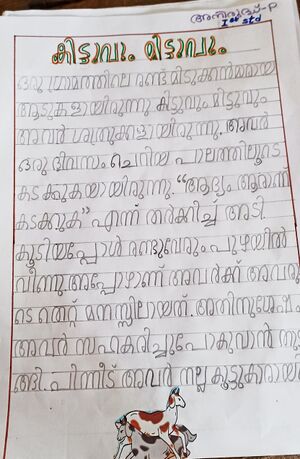 അനിരുദ്ധ്-P
Ist std
കിട്ടുവും മിട്ടുവും
ഒരു ഗ്രാമത്തിലെ രണ്ട് മിടുക്കൻമാരായ
ആടുകളായിരുന്നു കിട്ടുവും മിട്ടുവും
അവർ ശത്രുക്കളായിരുന്നു. അവർ
ഒരു ദിവസം ചെറിയ പാലത്തിലൂടെ
കടക്കുകയായിരുന്നു. "ആദ്യം ആരാണ്
കടക്കുക" എന്ന് തർക്കിച്ച് അടി
കൂടിയപ്പോൾ രണ്ടുപേരും പുഴയിൽ
വീണു അപ്പോഴാണ് അവർക്ക് അവരു
ടെ തെറ്റ് മനസ്സിലായത്. അതിനുശേഷം
അവർ സഹകരിച്ചുപോകുവാൻ തുട
ങ്ങി. പിന്നീട് അവർ നല്ല കൂട്ടുകാരായി